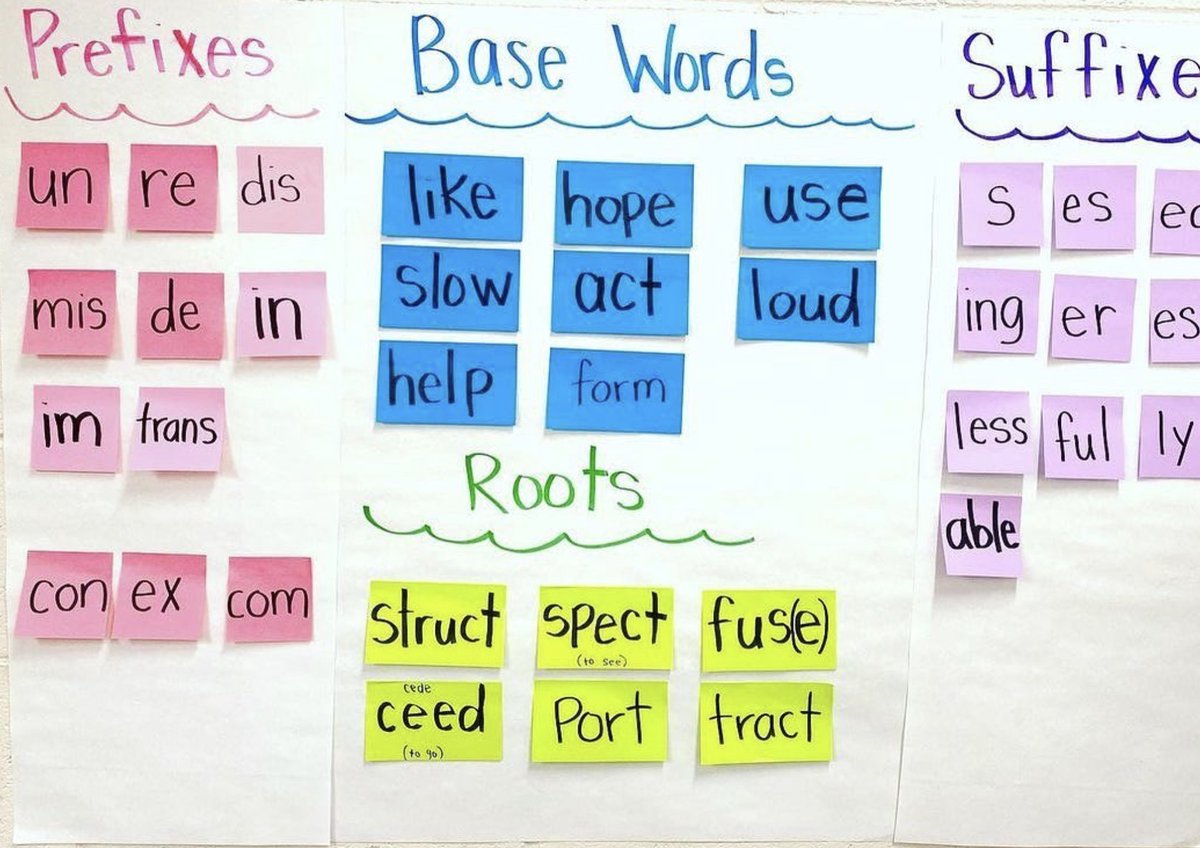 Prefixes
un re dis
mis de in
im trans
con ex com
Base Words
like hope use
slow act loud
help form
Roots
struct spect fus(e)
(to see)
cede
ceed Port tract
(to go)
Suffixe
s es
ing er es
less ful ly
able